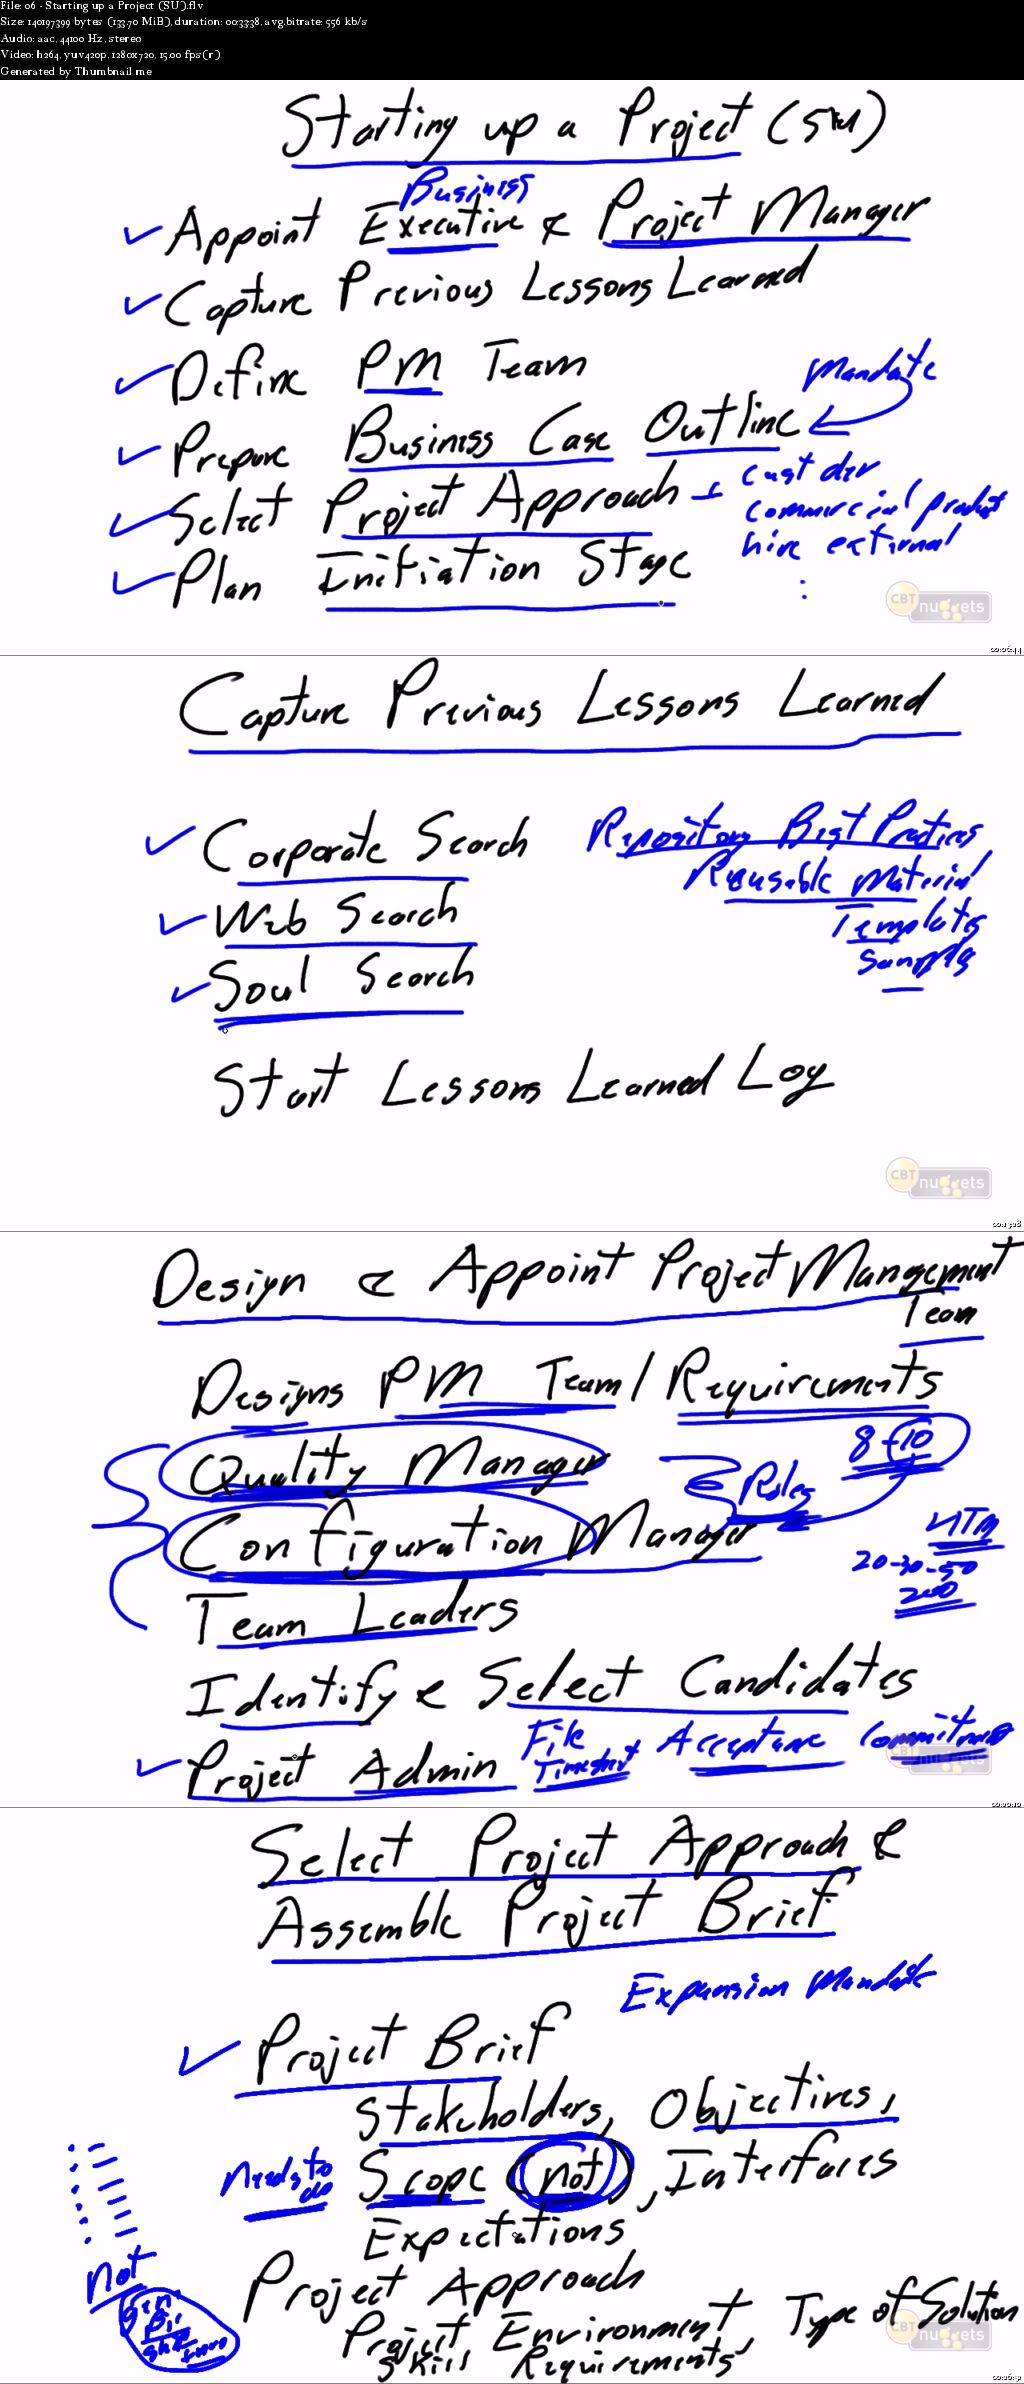 File: 06 - Starting up a Project (SU).flv
Size: 140197399 bytes (133.70 MiB), duration: 00:33:38, avg.bitrate: 556 kb/s
Audio: aac, 44100 Hz, stereo
Video: h264, yuv420p, 1280x720, 15.00 fps(r)
Generated by Thumbnail me
Starting up a Project
Business
Appoint Executive & Project Manager
Capture Previous Lessons Learned
Define PM Team
Mandate
Prepare Business Case Outline
Select Project Approach
cust dev
commercial product
hire external
Plan Initiation Stage
CBT nuggets
00:06:44
Capture Previous Lessons Learned
Corporate Search
Repository Best Practices
Reusable Material
Web Search
Templates
Samples
Soul Search
Start Lessons Learned Log
CBT nuggets
Design & Appoint Project Management
Team
Designs PM Team / Requirements
8-10
Quality Manager
Roles
Configuration Manager
20-30-50
200
Team Leaders
Identify & Select Candidates
File Acceptance Commitment
Project Admin Timesheet
Select Project Approach &
Assemble Project Brief
Expansion Mandate
Project Brief
Stakeholders, Objectives,
Needs to do
Scope (not), Interfaces
Expectations
not
Project Approach
Project Environment, Type of Solution
Skill Requirements